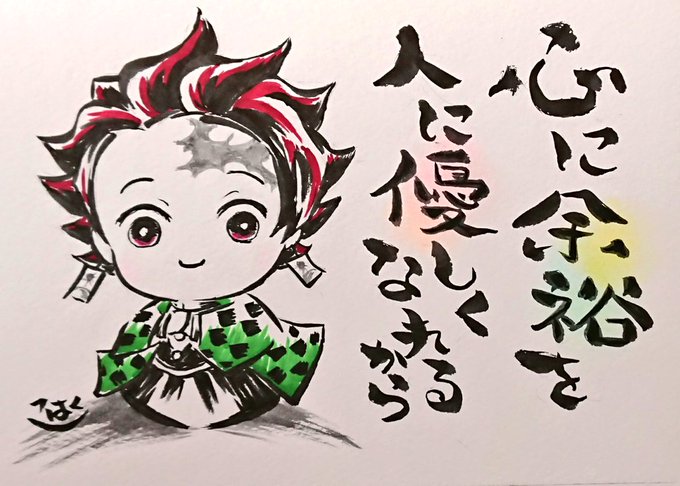 心に余裕を
人に優しく
なれるから
こはく